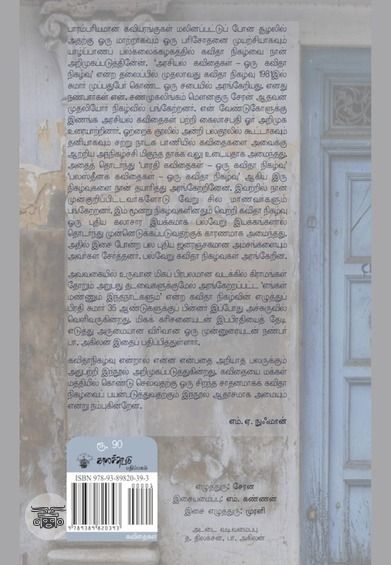 பாரம்பரியமான கவியரங்குகள் மலினப்பட்டுப் போன சூழலில்
அதற்கு ஒரு மாற்றாகவும் ஒரு பரிசோதனை முயற்சியாகவும்
யாழ்ப்பாணப் பல்கலைக்கழகத்தில் கவிதா நிகழ்வை நான்
அறிமுகப்படுத்தினேன். 'அரசியல் கவிதைகள் - ஒரு கவிதா
நிகழ்வு' என்ற தலைப்பில் முதலாவது கவிதா நிகழ்வு 1981இல்
சுமார் முப்பதுபேர் கொண்ட ஒரு சபையில் அரங்கேறியது. எனது
நண்பர்கள் என். சண்முகலிங்கம் மௌனகுரு சேரன் ஆதவன்
முதலியோர் நிகழ்வில் பங்கேற்றனர். என் வேண்டுகோளுக்கு
இணங்க அரசியல் கவிதைகள் பற்றி கைலாசபதி ஓர் அறிமுக
உரையாற்றினார். ஒற்றைக் குரலில் அன்றி பலகுரலில் கூட்டாகவும்
தனியாகவும் சற்று நாடக பாணியில் கவிதைகளை அவைக்கு
ஆற்றிய அந்நிகழ்ச்சி மிகுந்த தாக்க வலு உடையதாக அமைந்தது.
அதைத் தொடர்ந்து 'பாரதி கவிதைகள் – ஒரு கவிதா நிகழ்வு'
'பலஸ்தீனக் கவிதைகள் – ஒரு கவிதா நிகழ்வு' ஆகிய இரு
நிகழ்வுகளை நான் தயாரித்து அரங்கேற்றினேன். இவற்றில் நான்
முன்குறிப்பிட்டவர்களோடு வேறு சில மாணவர்களும்
பங்கேற்றனர். இம் மூன்று நிகழ்வுகளினதும் வெற்றி கவிதா நிகழ்வு
ஒரு புதிய கலாசார இயக்கமாக பல்வேறு இயக்கங்களால்
தொடர்ந்து முன்னெடுக்கப்படுவதற்குக் காரணமாக அமைந்தது.
அதில் இசை போன்ற பல புதிய ஜனரஞ்சகமான அம்சங்களையும்
அவர்கள் சேர்த்தனர். பல்வேறு கவிதா நிகழ்வுகள் அரங்கேறின.
அவ்வகையில் உருவான மிகப் பிரபலமான வடக்கில் கிராமங்கள்
தோறும் அறுபது தடவைகளுக்குமேல் அரங்கேற்றப்பட்ட, 'எங்கள்
மண்ணும் இந்தநாட்களும்' என்ற கவிதா நிகழ்வின் எழுத்துப்
பிரதி சுமார் 35 ஆண்டுகளுக்குப் பின்னர் இப்போது அச்சுருவில்
வெளிவருகின்றது. மிகக் கரிசனையுடன் இப்பிரதியைத் தேடி
எடுத்து அருமையான விரிவான ஒரு முன்னுரையுடன் நண்பர்
பா. அகிலன் இதைப் பதிப்பித்துள்ளார்.
கவிதாநிகழ்வு என்றால் என்ன என்பதை அறியாத பலருக்கும்
அதுபற்றி இந்நூல் அறிமுகப்படுத்துகின்றது. கவிதையை மக்கள்
மத்தியில் கொண்டு செல்வதற்கு ஒரு சிறந்த சாதனமாகக் கவிதா
நிகழ்வைப் பயன்படுத்துவதற்கும் இந்நூல் ஆதாரமாக அமையும்
என்று நம்புகிறேன்.
எம். ஏ. நுஃமான்
ரூ. 90
காலச்சுவடு
பதிப்பகம்
ISBN 978-93-89820-39-3
00003
9 789389 820393
கவிதைகள்
எழுத்துரு: சேரன்
இசையமைப்பு: எம். கண்ணன்
இசை எழுத்துரு: முரளி
அட்டை வடிவமைப்பு
த. திலக்சன், பா. அகிலன்